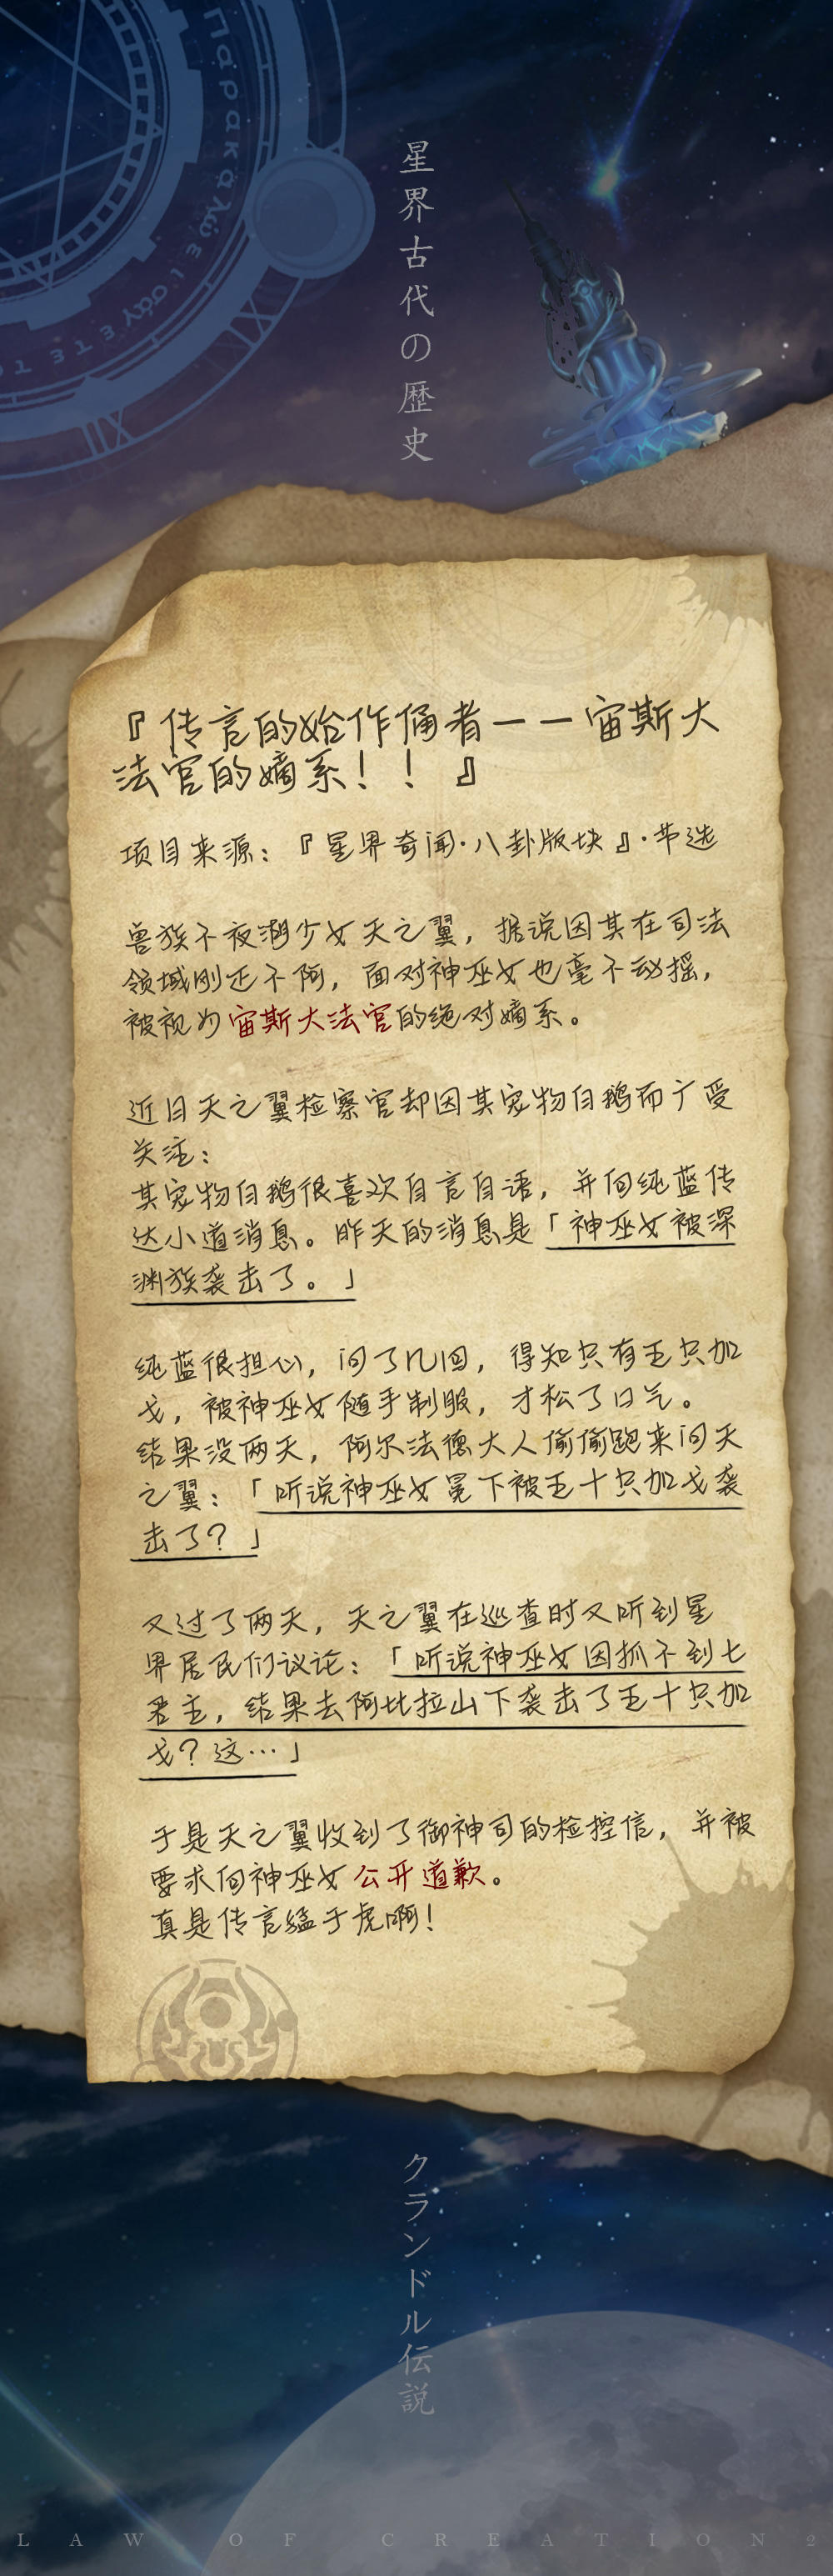 星界古代の歴史
『传言的始作俑者——宙斯大
法官的嫡系！！』
项目来源：『星界奇闻·八卦版块』·节选
兽族不夜湖少女天之翼，据说因其在司法
领域刚正不阿，面对神巫女也毫不动摇，
被视为宙斯大法官的绝对嫡系。
近日天之翼检察官却因其宠物白鹅而广受
关注：
其宠物白鹅很喜欢自言自语，并向纯蓝传
达小道消息。昨天的消息是「神巫女被深
渊族袭击了。」
纯蓝很担心，问了几回，得知只有五只加
戈，被神巫女随手制服，才松了口气。
结果没两天，阿尔法德大人偷偷跑来问天
之翼：「听说神巫女冕下被五十只加戈袭
击了？」
又过了两天，天之翼在巡查时又听到星
界居民们议论：「听说神巫女因抓不到七
君主，结果去阿比拉山下袭击了五十只加
戈？这…」
于是天之翼收到了御神司的检控信，并被
要求向神巫女公开道歉。
真是传言猛于虎啊！
クランドル伝説
LAW OF CREATION2